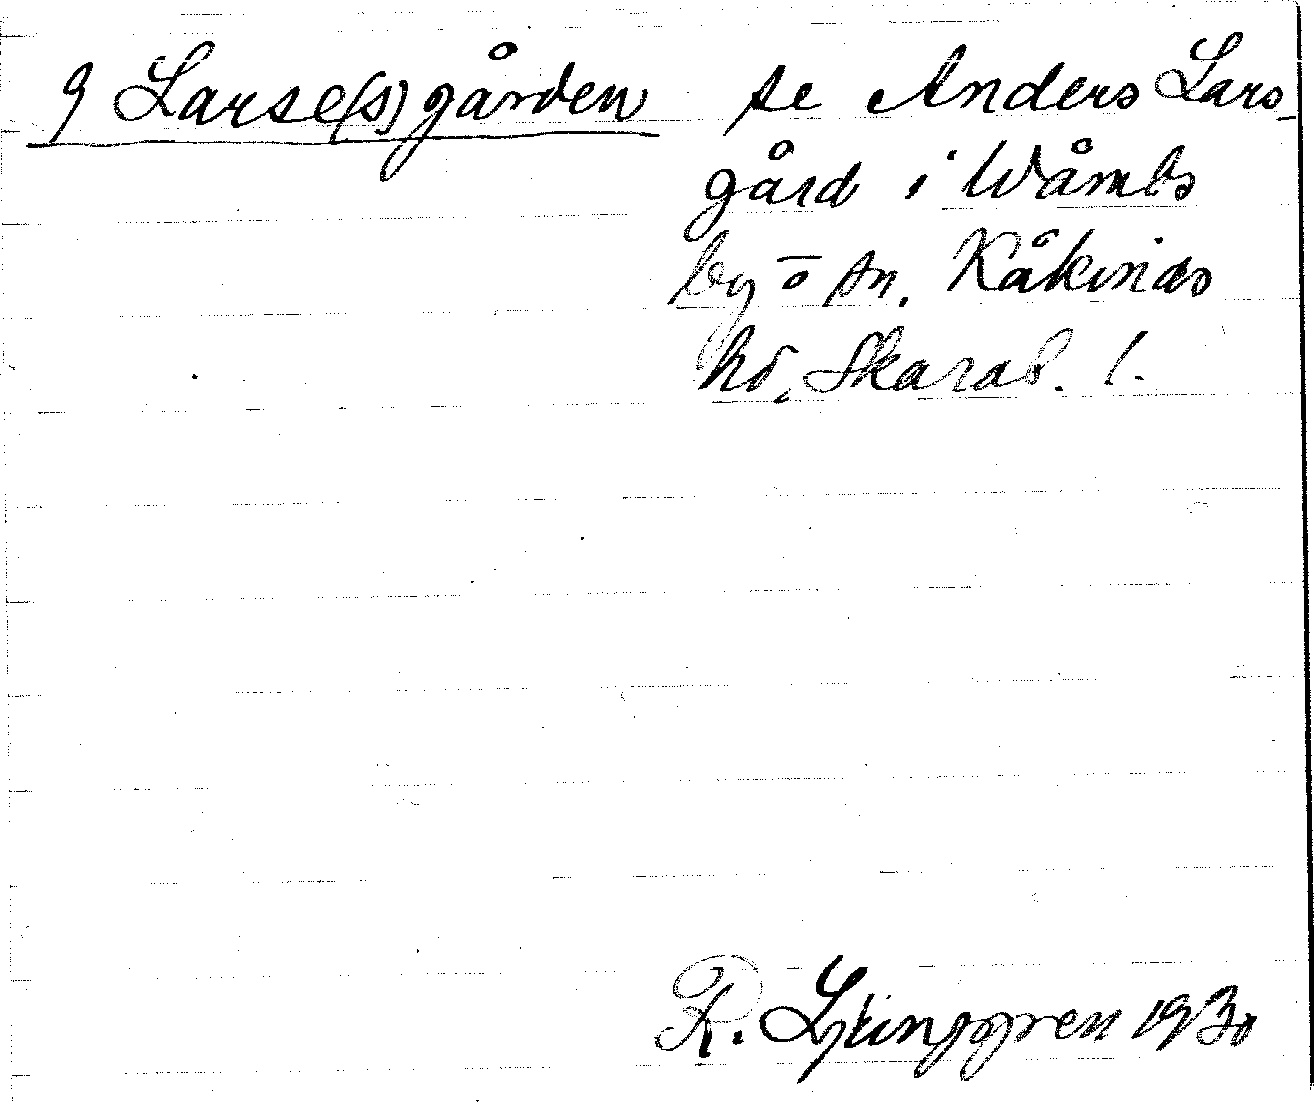 g Larse(s)gården se Anders Lars-
gård i Wåmbs
by o sn. Kåkinds
hd, Skarab. l.
R. Ljunggren 1930